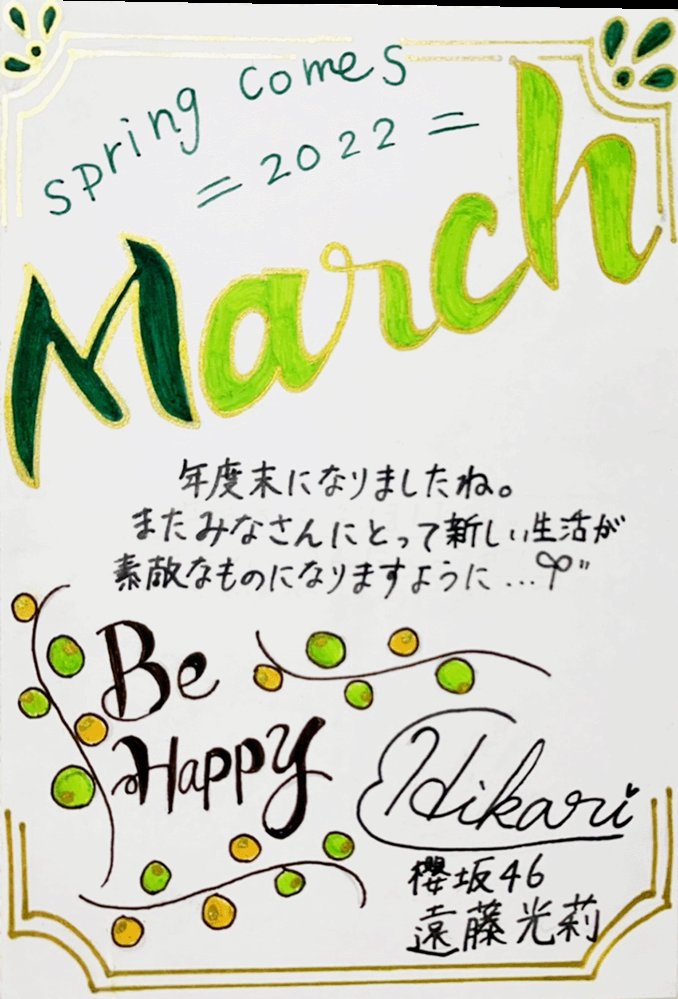 spring comes
=2022=
March
年度末になりましたね。
またみなさんにとって新しい生活が
素敵なものになりますように...
Be
Happy
Hikari
櫻坂46
遠藤光莉